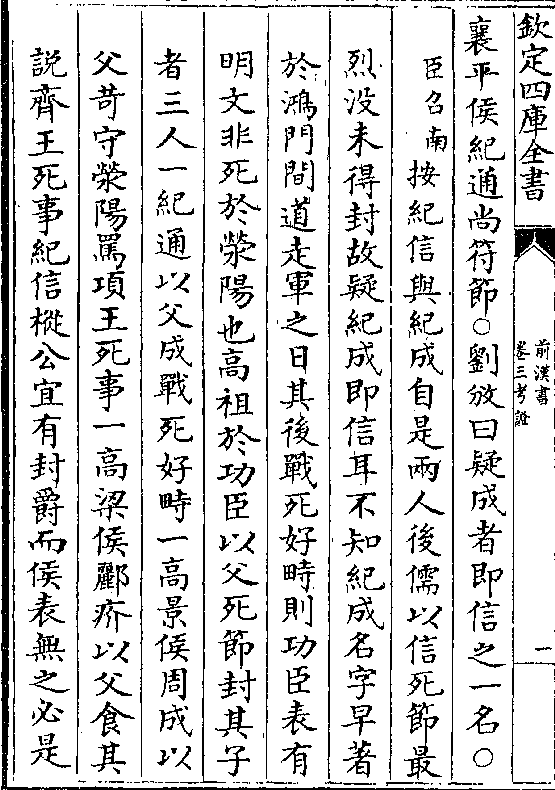 欽定四庫全書
前漢書
卷三考證
一
襄平侯紀通尚符節○劉攽曰疑成者即信之一名○
臣召南按紀信與紀成自是兩人後儒以信死節最
烈没未得封故疑紀成即信耳不知紀成名字早著
於鴻門間道走軍之日其後戰死好畤則功臣表有
明文非死於滎陽也高祖於功臣以父死節封其子
者三人一紀通以父成戰死好畤一高景侯周成以
父苛守滎陽罵項王死事一高梁侯酈疥以父食其
説齊王死事紀信樅公宜有封爵而侯表無之必是